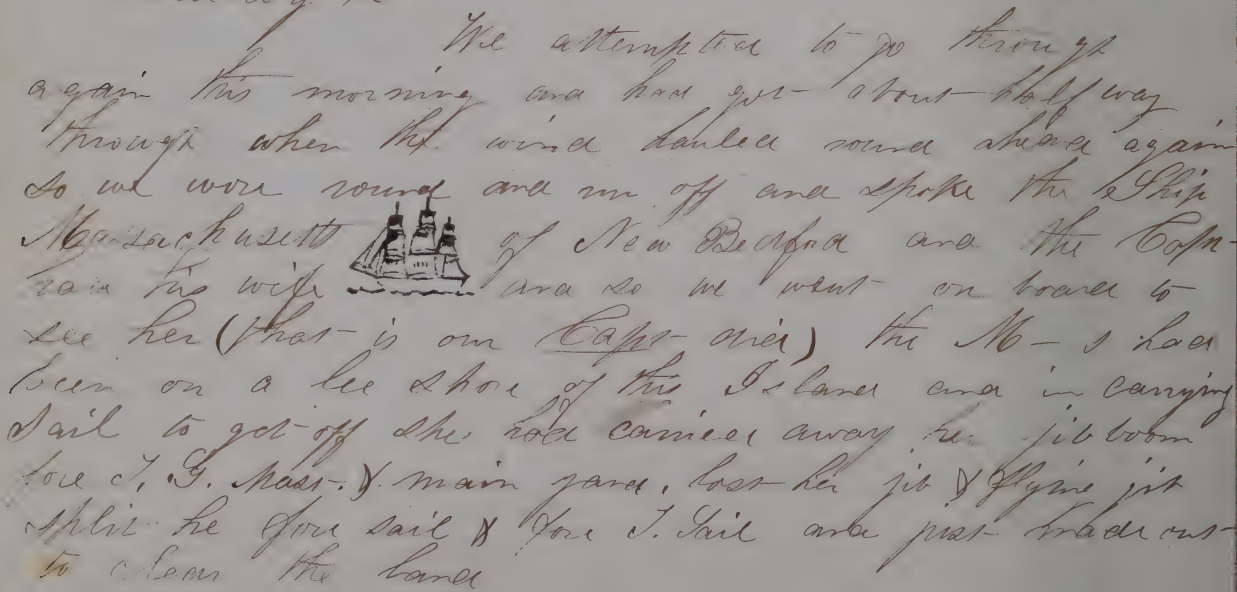 We attempted to go through
again this morning and had got about half way
through when the wind hauled round ahead again
so we wore round and run off and spoke the Ship
Massachusetts of New Bedford and the Capt-
his wife and so we went on board to
see her (that is our Capt- did) the M - s had
been on a lee shore of this Island and in carrying
Sail to get off she had carried away her jib boom
fore T. G. Mast. & main yard, lost her jib & flying jib
split he fore sail & fore T. Sail and just made out
to clear the land